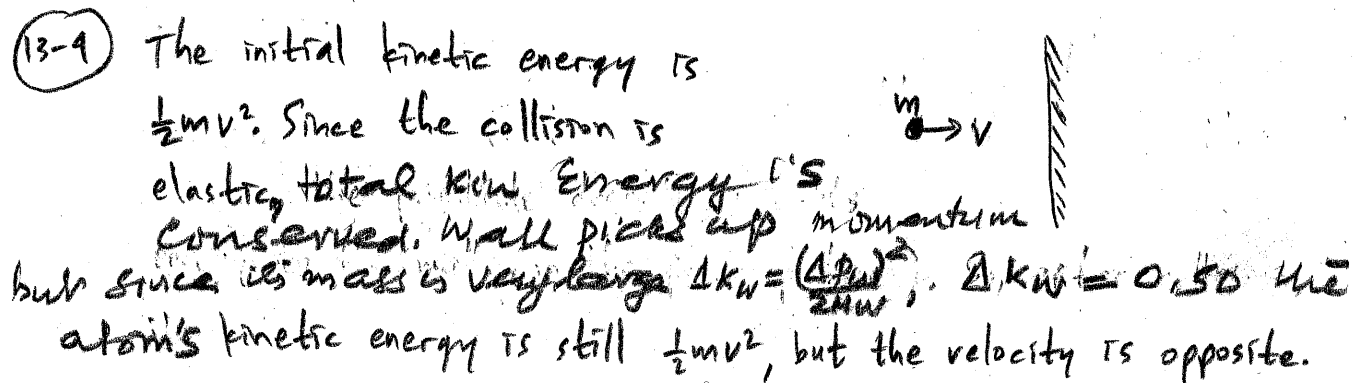 13-9 The initial kinetic energy is
m
½mv². Since the collision is
v
elastic, total kin Energy is
conserved. Wall picks up momentum
but since its mass is very large ΔK_W = (ΔP_W)²/2M_W, ΔK_W = 0, so the
atom's kinetic energy is still ½mv², but the velocity is opposite.